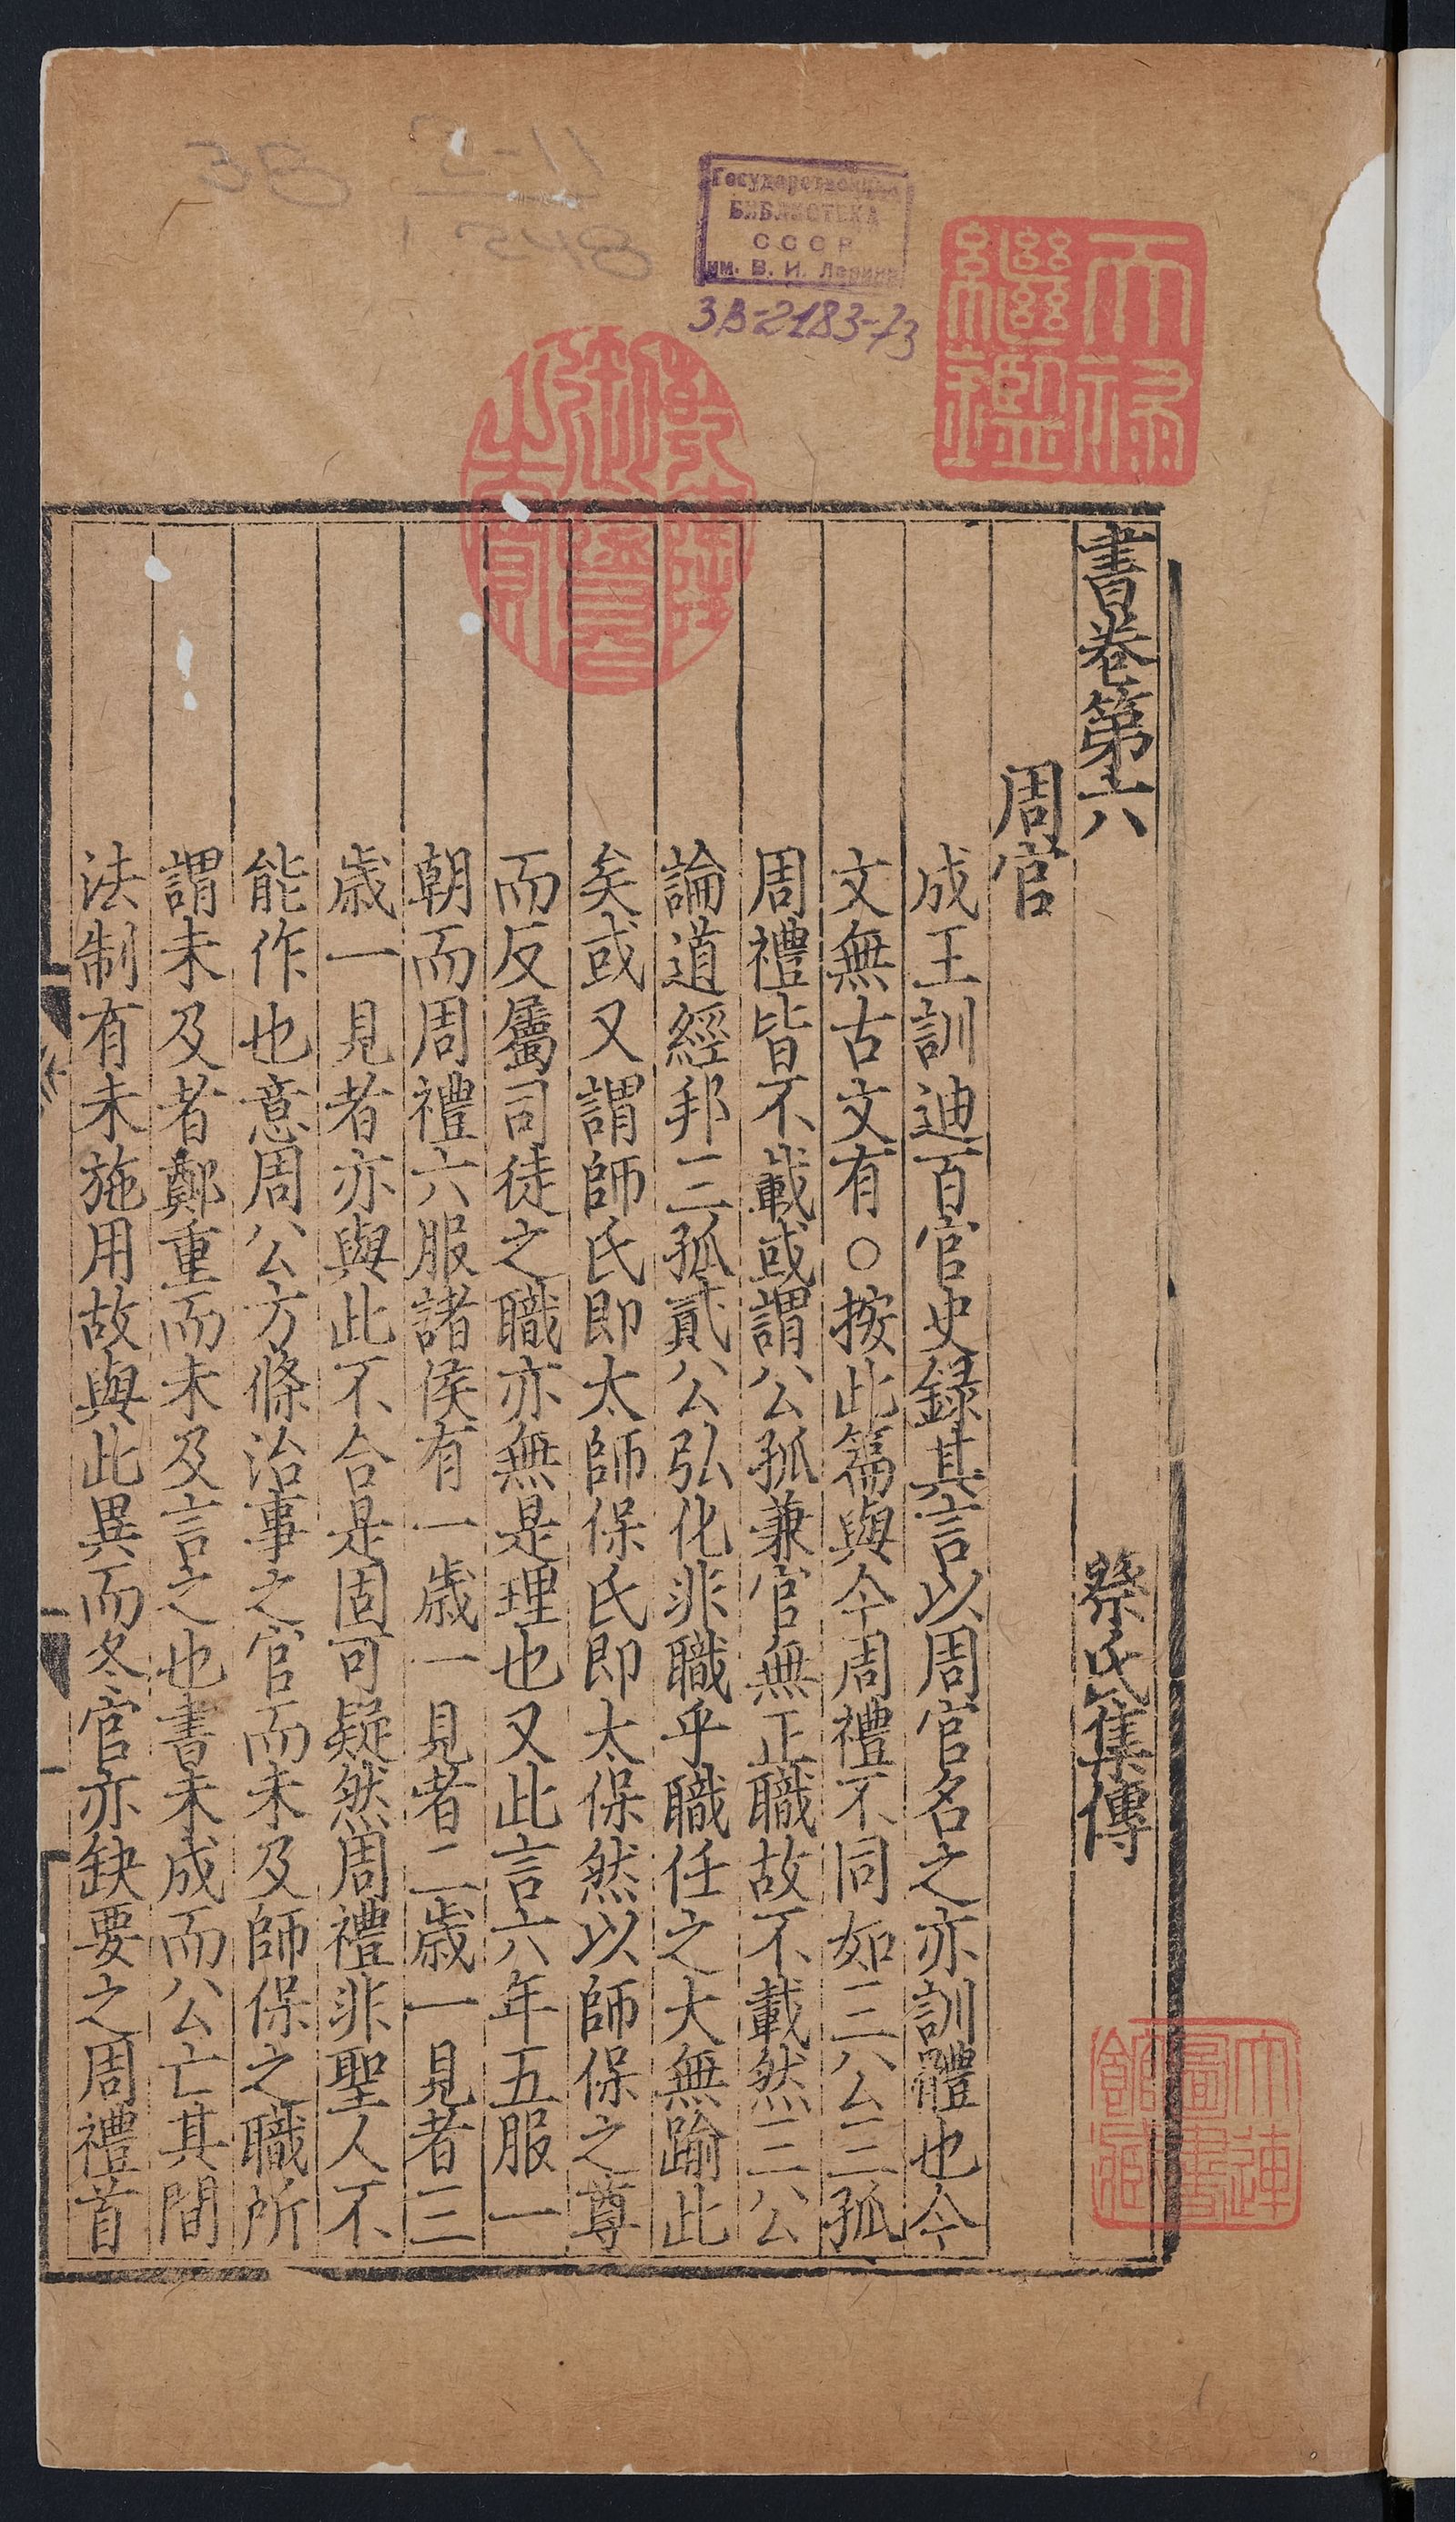 書卷第六
蔡氏集傳
周官
成王訓迪百官史録其言以周官名之亦訓體也今
文無古文有○按此篇與今周禮不同如三公三孤
周禮皆不載或謂公孤兼官無正職故不載然三公
論道經邦三孤貳公弘化非職乎職任之大無踰此
矣或又謂師氏即太師保氏即太保然以師保之尊
而反屬司徒之職亦無是理也又此言六年五服一
朝而周禮六服諸侯有一歲一見者二歲一見者三
歲一見者亦與此不合是固可疑然周禮非聖人不
能作也意周公方條治事之官而未及師保之職所
謂未及者鄭重而未及言之也書未成而公亡其間
法制有未施用故與此異而冬官亦缺要之周禮首
Государственная
БИБЛИОТЕКА
СССР
им. В. И. Ленина
3В-2183-73
天祿繼鑑
大連圖書館藏